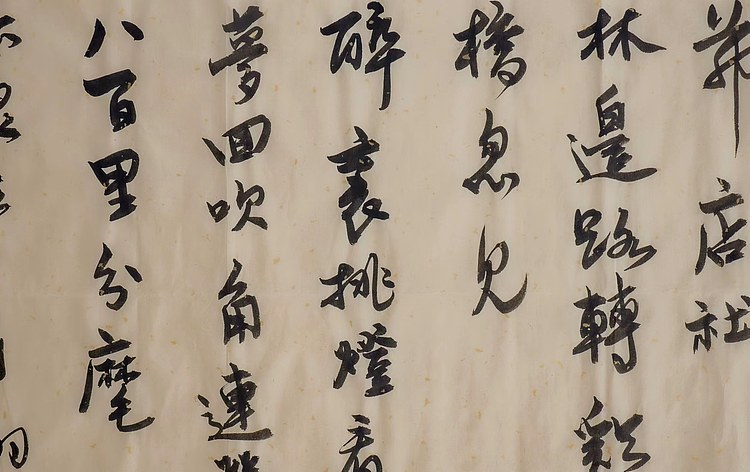 茅店社
林邊路轉谿
橋忽見
醉裏挑燈看
夢回吹角連
八百里分麾